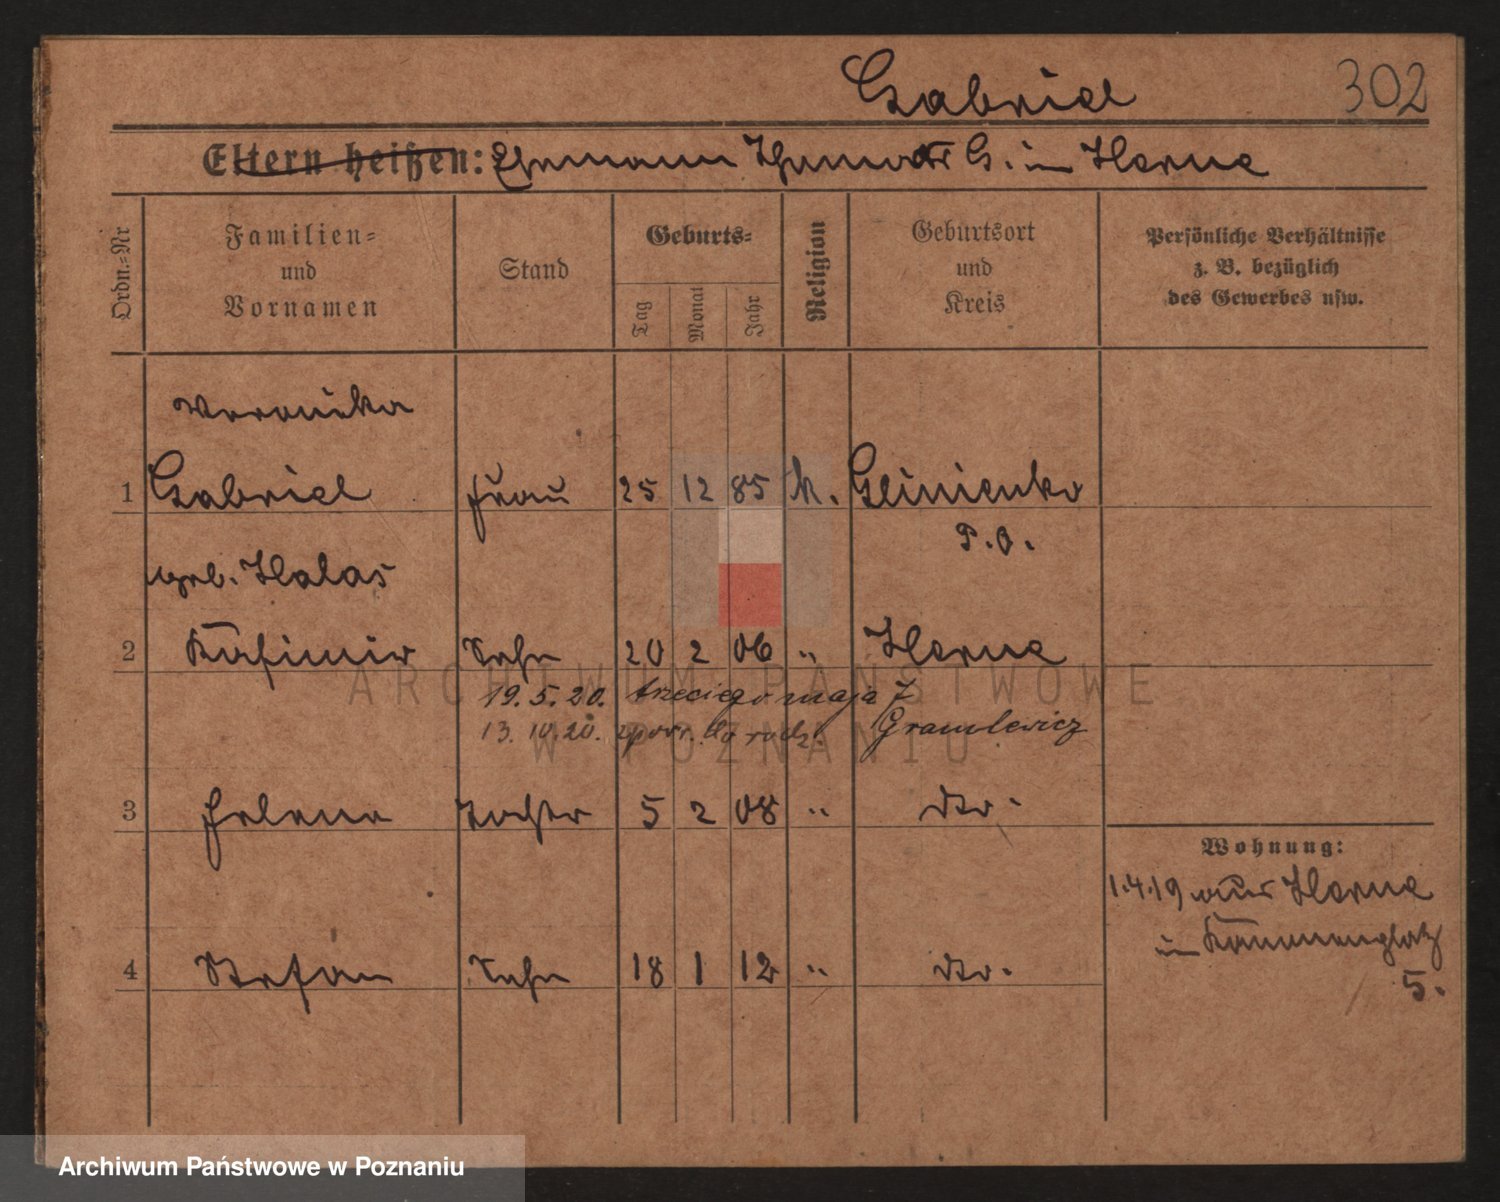 Gabriel 302
Eltern heißen: Ehemann G. in Herne
Ordn.-Nr
Familien-
und
Vornamen
Stand
Geburts-
Tag
Monat
Jahr
Religion
Geburtsort
und
Kreis
Persönliche Verhältnisse
z. B. bezüglich
des Gewerbes usw.
Veronika
1 Gabriel Frau 25 12 85 k. Glinienko
P.O.
geb. Halas
2 Kasimir Sohn 20 2 06 " Herne
19.5.20. trzeciego maja 7
13.10.20. do rodz. Gramlewicz
3 Helene Tochter 5 2 08 " dto.
Wohnung:
1.4.19 aus Herne
in Kämmereiplatz
5.
4 Stefan Sohn 18 1 12 " dto.
ARCHIWUM PAŃSTWOWE
W POZNANIU
Archiwum Państwowe w Poznaniu